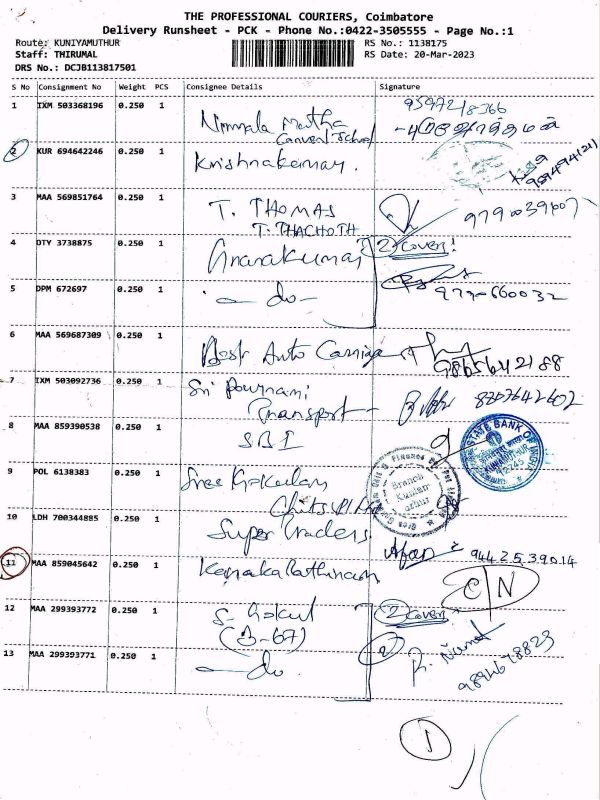 THE PROFESSIONAL COURIERS, Coimbatore
Delivery Runsheet - PCK - Phone No.:0422-3505555 - Page No.:1
Route: KUNIYAMUTHUR
RS No.: 1138175
Staff: THIRUMAL
RS Date: 20-Mar-2023
DRS No.: DCJB113817501
S No Consignment No Weight PCS Consignee Details Signature
1 IXM 503368196 0.250 1 Nirmala Matha 9597218366
Convent School
2 KUR 694642246 0.250 1 Krishnakumar.
3 MAA 569851764 0.250 1 T. THOMAS 9790039607
T. THACHOTH
4 OTY 3738875 0.250 1 2 Cover!
5 DPM 672697 0.250 1 - do -
6 MAA 569687309 0.250 1 Best Auto 9865642188
7 IXM 503092736 0.250 1 Sri Pournami 8807642602
Transport
8 MAA 859390538 0.250 1 SBI
STATE BANK OF INDIA
KUNIAMUTHUR
9 POL 6138383 0.250 1 Sree Gokulam
Chits
Branch
Kuniam
uthur
10 LDH 700344885 0.250 1 Super Traders
944 25 390 14
11 MAA 859045642 0.250 1 KanakaRathinam C/N
12 MAA 299393772 0.250 1 S. Gokul 2 Cover
(B-67)
13 MAA 299393771 0.250 1 - do. 2
9894678823
1